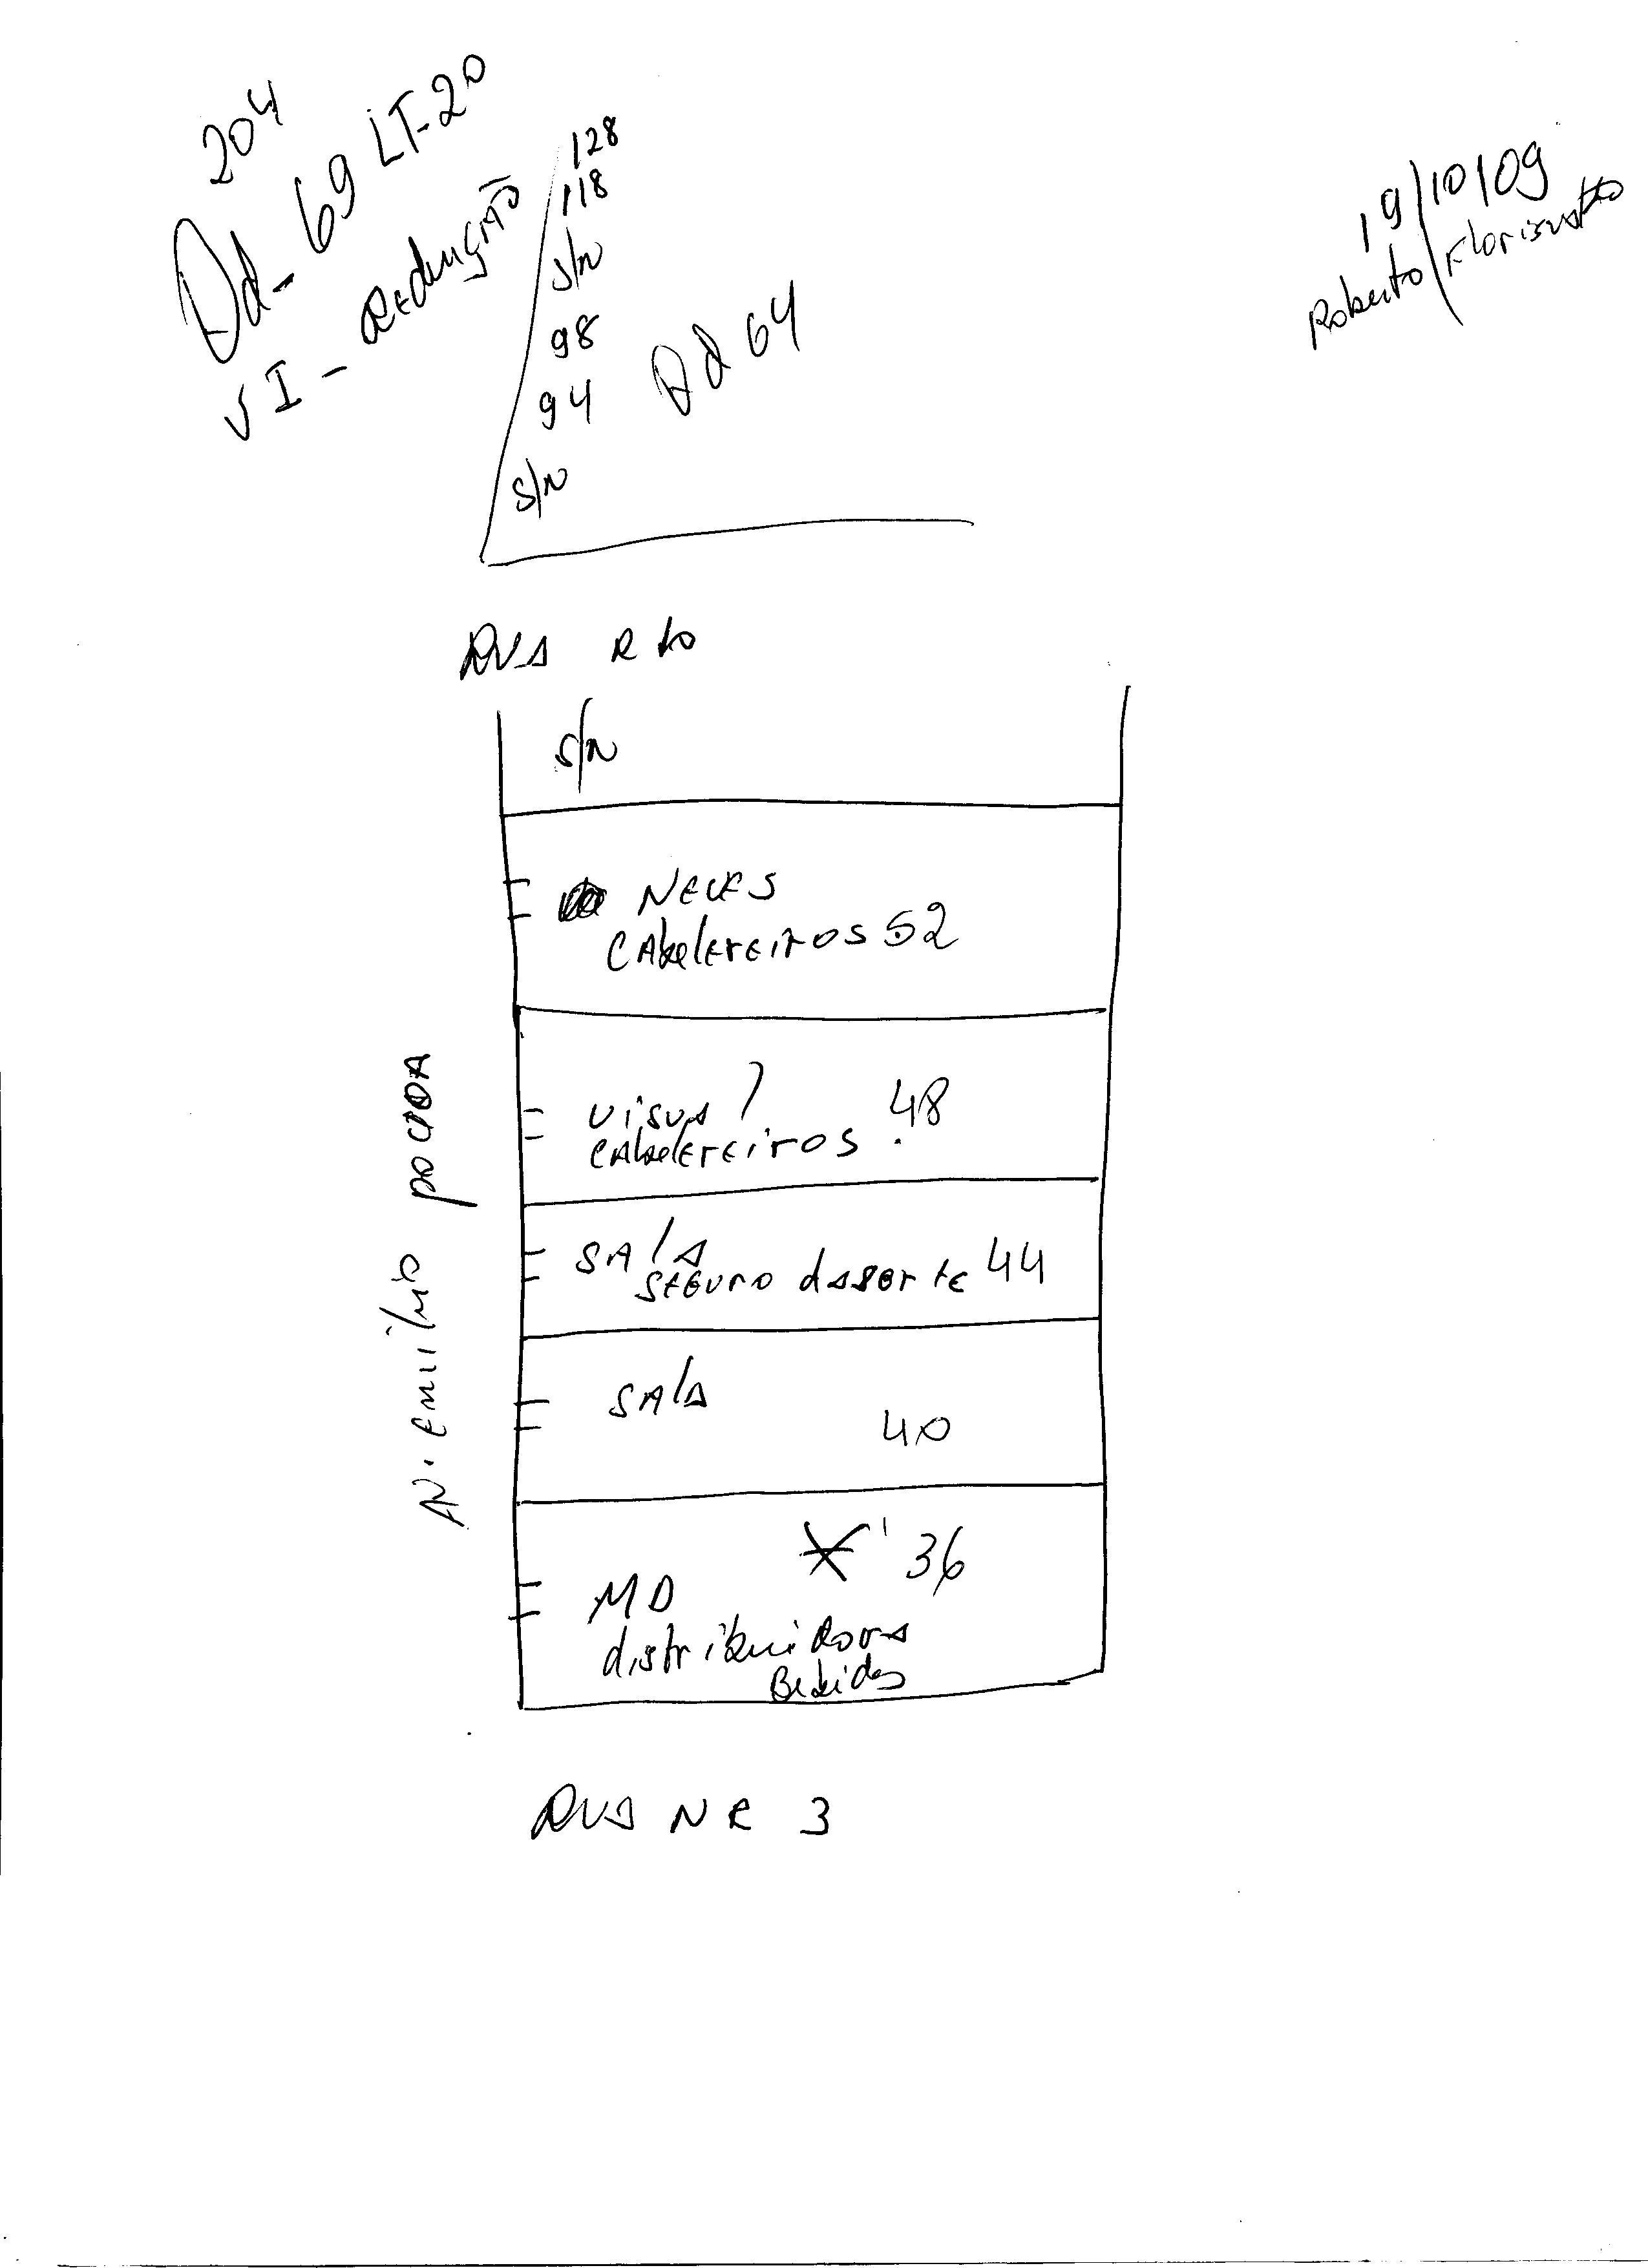 204
Qd- 69 LT-20
VI - REDENÇÃO
128
118
S/N
98
94
S/N
Qd 64
19/10/09
Roberto / Florisvaldo
RUA R 10
S/N
NEVES
CABELEREIROS 52
VISUAL 48
CABELEREIROS
SALA
SEGURO DA SORTE 44
SALA
40
36
MD
distribuidora
Bebidas
AV. EMILIO POVOA
RUA NR 3